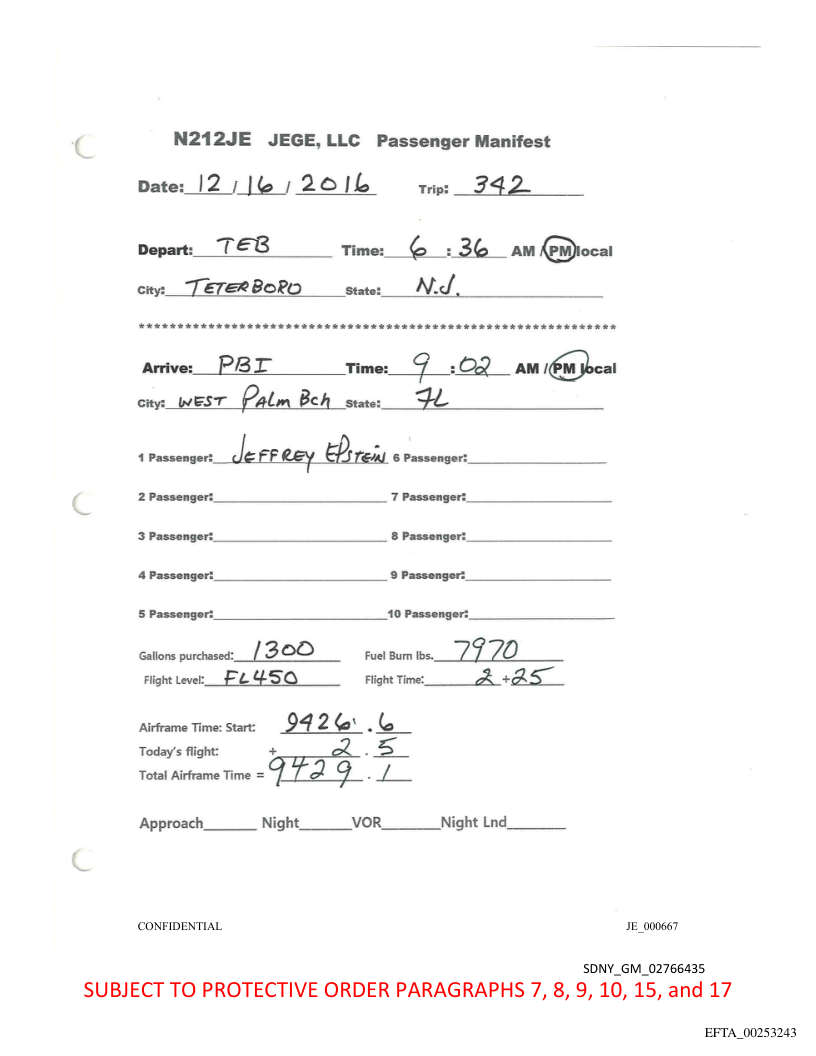 N212JE JEGE, LLC Passenger Manifest
Date: 12 / 16 / 2016 Trip: 342
Depart: TEB Time: 6 : 36 AM / PM local
City: TETERBORO State: N.J.
************************************************************
Arrive: PBI Time: 9 : 02 AM / PM local
City: WEST PALM Bch State: FL
1 Passenger: JEFFREY EPSTEIN 6 Passenger:
2 Passenger: 7 Passenger:
3 Passenger: 8 Passenger:
4 Passenger: 9 Passenger:
5 Passenger: 10 Passenger:
Gallons purchased: 1300 Fuel Burn lbs. 7970
Flight Level: FL450 Flight Time: 2 + 25
Airframe Time: Start: 9426 . 6
Today's flight: + 2 . 5
Total Airframe Time = 9429 . 1
Approach Night VOR Night Lnd
CONFIDENTIAL JE_000667
SDNY_GM_02766435
SUBJECT TO PROTECTIVE ORDER PARAGRAPHS 7, 8, 9, 10, 15, and 17
EFTA_00253243